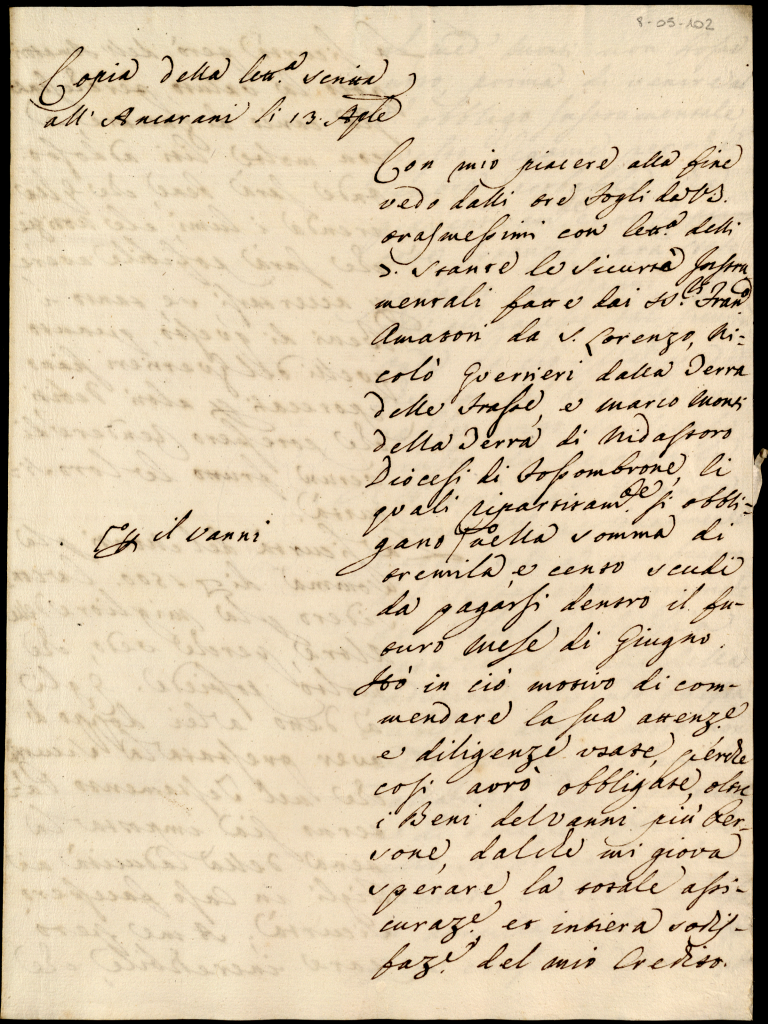 8-05-102
Copia della lett.ª scritta
all' Ancarani li 13. Aple
Con mio piacere alla fine
vedo dalli tre fogli da VS.
trasmessimi con lett.ª delli
5. stante le sicurtà Instru
mentali fatte dai SS.ri Fran.co
Amatori da S. Lorenzo, Ni=
colò Guerrieri dalla Terra
delle Fratte, e Marco Monti
della Terra di Nidastoro
Diocesi di Fossombrone, li
quali ripartitam.te si obbli=
gano nella somma di
p il Vanni
tremila e cento scudi
da pagarsi dentro il fu-
turo Mese di Giugno.
Hò in ciò motivo di com-
mendare la sua attenz.e
e diligenze usate, perche
così avrò obbligate, oltre
i Beni del Vanni più Per-
sone, dalche mi giova
sperare la totale assi-
curaz.e, et intiera sodis-
faz.e del mio Credito.